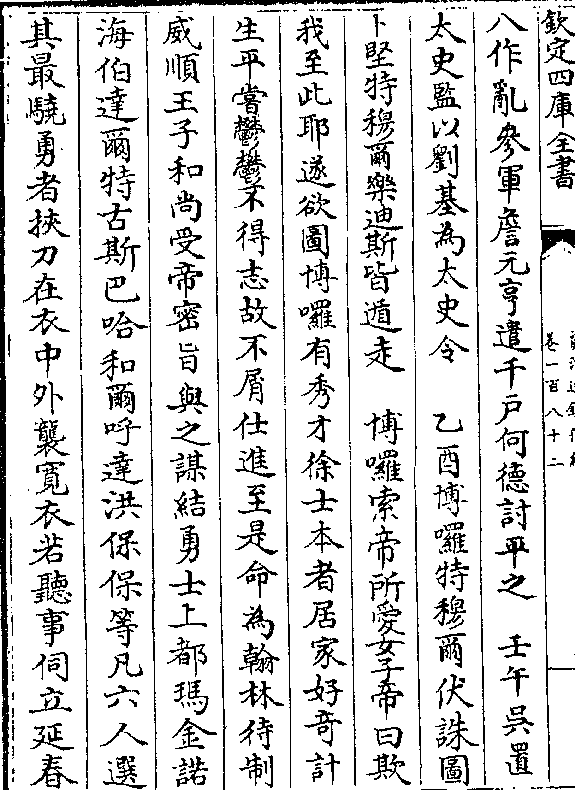 欽定四庫全書
卷一百八十二
八作亂參軍詹元亨遣千戶何德討平之　壬午吳置
太史監以劉基為太史令　乙酉博囉特穆爾伏誅圖
卜堅特穆爾樂迪斯皆遁走　博囉索帝所愛女子帝曰欺
我至此耶遂欲圖博囉有秀才徐士本者居家好奇計
生平嘗鬱鬱不得志故不屑仕進至是命為翰林待制
威順王子和尚受帝密旨與之謀結勇士上都瑪金諾
海伯達爾特古斯巴哈和爾呼達洪保保等凡六人選
其最驍勇者挾刀在衣中外襲寬衣若聽事伺立延春